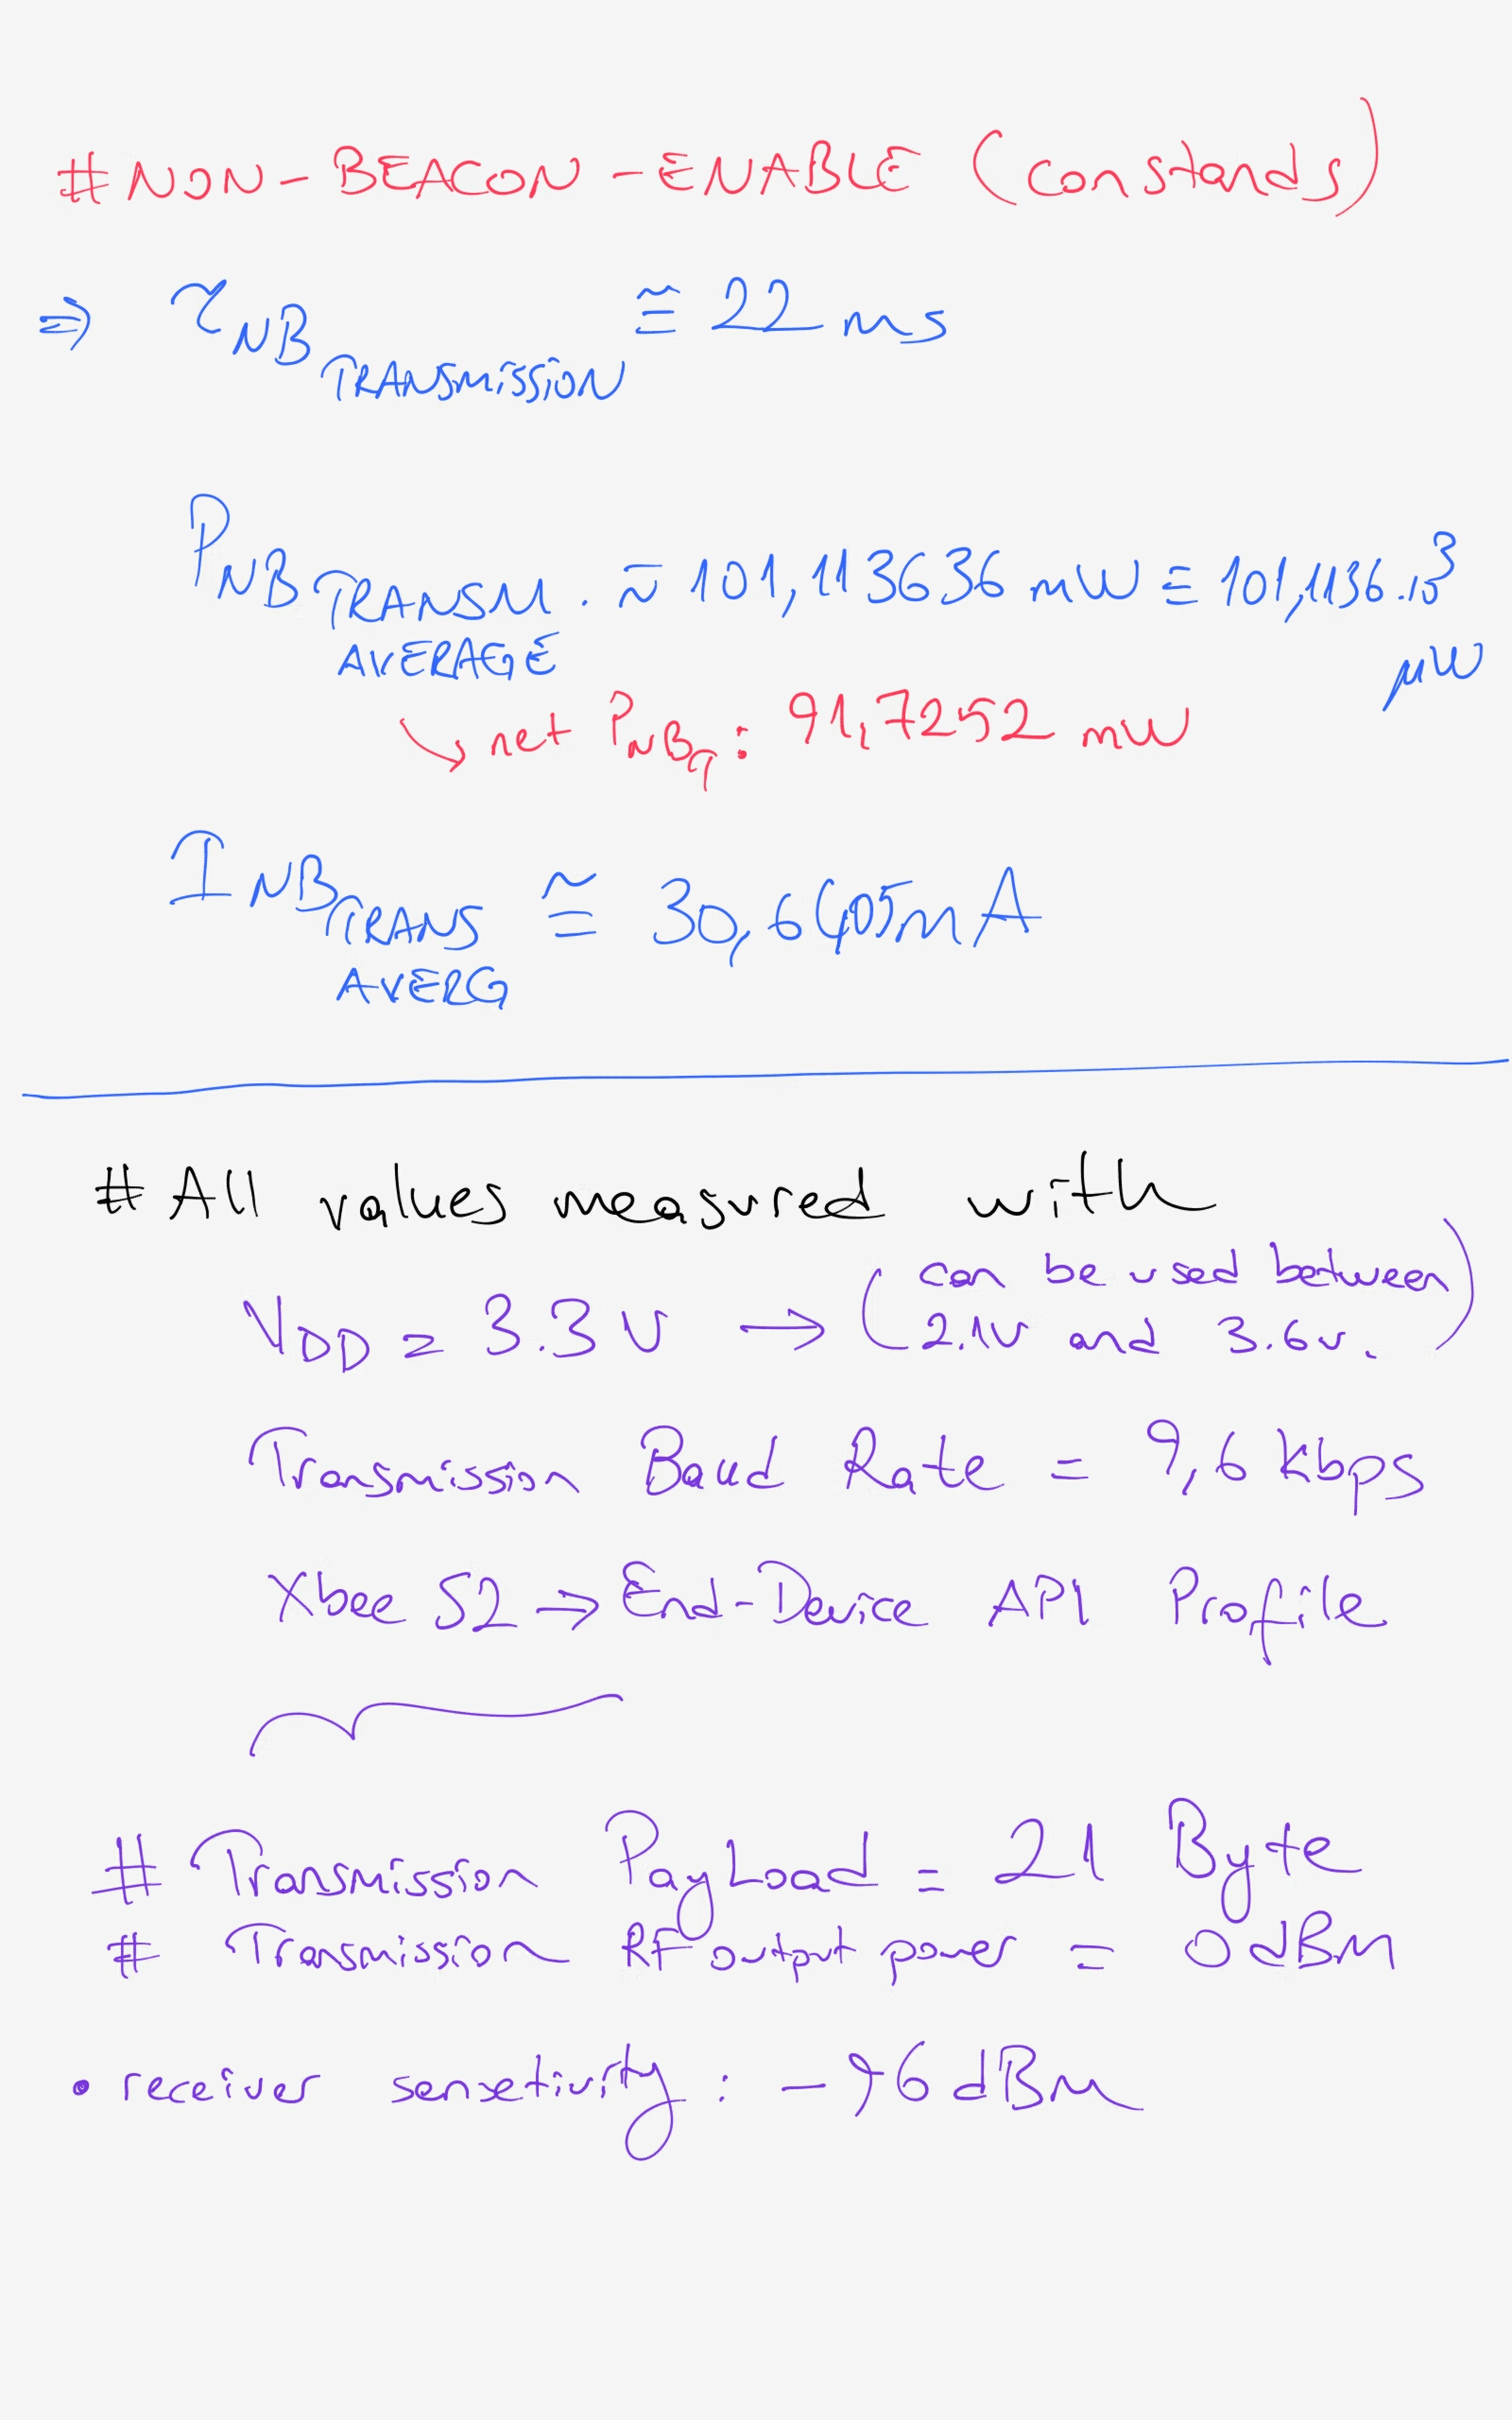 # NON-BEACON-ENABLE (constands)
⇒ τ NB TRANSMISSION ≅ 22 ms
P NB TRANSM. AVERAGE ≅ 101,113636 mW ≅ 101,1136.10³ µW
↳ net P NB T : 91,7252 mW
I NB TRANS AVERG ≅ mA
# All values measured with
V DD = 3.3V → (can be used between 2.1V and 3.6v.)
Transmission Baud Rate = 9,6 kbps
Xbee S2 → End-Device API Profile
# Transmission PayLoad = 21 Byte
# Transmission RF output power = 0 dBm
• receiver sensetivity : -96 dBm